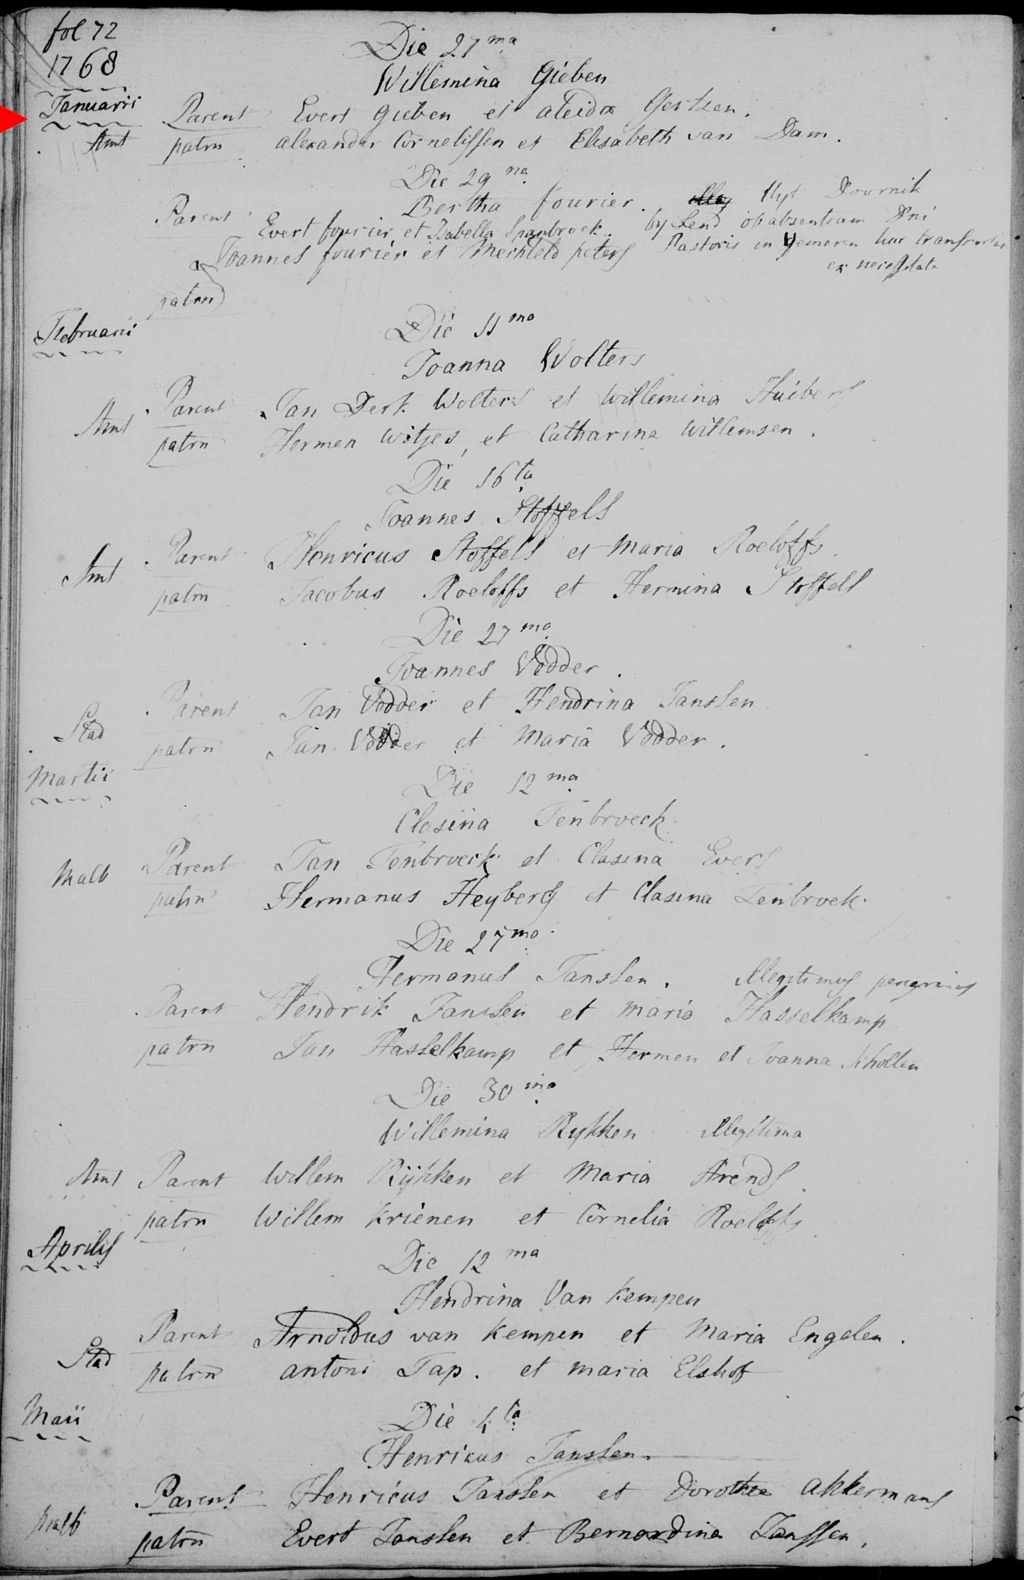 fol 72
1768
Die 27 ma
Willemina Gieben
Januarii
Parent Evert Gieben et aleida Gertsen.
Amt patrn alexander Cornelissen et Elisabeth van Dam.
Die 29 na
Bertha fourier. Uyt Doornik
Parent Evert fourier et Isabella Spanbroek. by Lend ob absentiam Dni
Joannes fourier et Mechteld peters Pastoris in Gemeren huc
ex necessitate
patrn
Februarii
Die 11 ma
Joanna Wolters
Parent Jan Derk Wolters et Willemina Huibers
Amt patrn Hermen Witjes, et Catharina Willemsen.
Die 16 ta
Joannes Stoffels
Parent Henricus Stoffels et Maria Roeloffs.
Amt patrn Jacobus Roeloffs et Hermina Stoffels
Die 27 ma
Joannes Vodder.
Parent Jan Vodder et Hendrina Janssen
Stad patrn Jan Vodder et Maria Vodder.
Martii
Die 12 ma
Clasina Tenbroeck.
Malb Parent Jan Tenbroeck et Clasina Evers
patrn Hermanus Heybers et Clasina Tenbroek.
Die 27 ma
Hermanus Janssen. Illegitimus peregrinus
Parent Hendrik Janssen et Maria Hasselkamp
patrn Jan Hasselkamp et Hermen et Joanna Scholten
Die 30 ma
Willemina Rykken illegitima
Amt Parent Willem Rijkken et Maria Arends
patrn Willem Krienen et Cornelia Roeloffs
Aprilis
Die 12 ma
Hendrina Van Kempen
Parent Arnoldus van Kempen et Maria Engelen.
Stad patrn antoni Tap. et maria Elshof
Maii
Die 4 ta
Henricus Janssen.
Parent Henricus Janssen et Dorothea Akkermans
Malb patrn Evert Janssen et Bernardina Janssen.